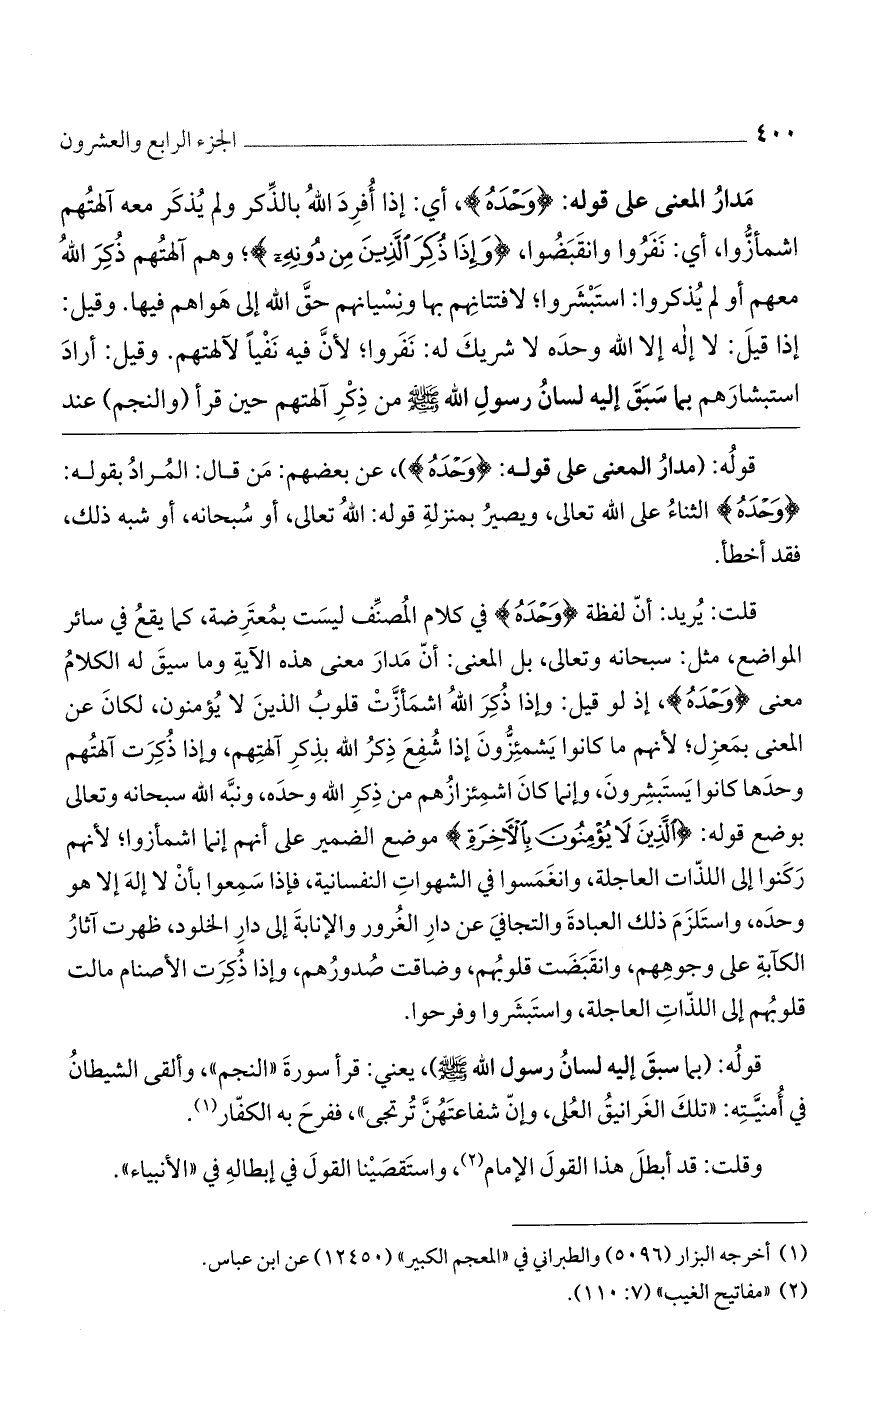 ٤٠٠ ــــــــــــــــــــ الجزء الرابع والعشرون
مَدارُ المعنى على قوله: ﴿وَحْدَهُ﴾، أي: إذا أُفرِدَ اللهُ بالذِّكر ولم يُذكَر معه آلهتُهم
اشمأزُّوا، أي: نَفَرُوا وانقبَضُوا، ﴿وَإِذَا ذُكِرَ ٱلَّذِينَ مِن دُونِهِۦٓ﴾؛ وهم آلهتُهم ذُكِرَ اللهُ
معهم أو لم يُذكروا: استَبْشَروا؛ لافتتانِهم بها ونِسْيانهم حقَّ الله إلى هَواهم فيها. وقيل:
إذا قيلَ: لا إلٰه إلا الله وحدَه لا شريكَ له: نَفَروا؛ لأنَّ فيه نَفْياً لآلهتهم. وقيل: أرادَ
استبشارَهم بما سَبَقَ إليه لسانُ رسولِ الله ﷺ من ذِكْرِ آلهتهم حين قرأ (والنجم) عند
قولُه: (مدارُ المعنى على قولـه: ﴿وَحْدَهُ﴾)، عن بعضهم: مَن قـال: المُـرادُ بقولـه:
﴿وَحْدَهُ﴾ الثناءُ على الله تعالى، ويصيرُ بمنزلةِ قوله: اللهُ تعالى، أو سُبحانه، أو شبه ذلك،
فقد أخطأ.
قلت: يُريد: أنّ لفظة ﴿وَحْدَهُ﴾ في كلام المُصنِّف ليسَت بمُعتَرِضة، كما يقعُ في سائر
المواضع، مثل: سبحانه وتعالى، بل المعنى: أنّ مَدارَ معنى هذه الآيةِ وما سيقَ له الكلامُ
معنى ﴿وَحْدَهُ﴾، إذ لو قيل: وإذا ذُكِرَ اللهُ اشمأزَّتْ قلوبُ الذينَ لا يُؤمنون، لكانَ عن
المعنى بمَعزِل؛ لأنهم ما كانوا يَشمئِزُّونَ إذا شُفِعَ ذِكرُ الله بذِكرِ آلهتِهم، وإذا ذُكِرَت آلهتُهم
وحدَها كانوا يَستَبشِرونَ، وإنما كانَ اشمِئزازُهم من ذِكرِ الله وحدَه، ونبَّه الله سبحانه وتعالى
بوضع قوله: ﴿ٱلَّذِينَ لَا يُؤْمِنُونَ بِٱلْآخِرَةِ﴾ موضع الضمير على أنهم إنما اشمأزوا؛ لأنهم
رَكَنوا إلى اللذّات العاجلة، وانغَمَسوا في الشهواتِ النفسانية، فإذا سَمِعوا بأنْ لا إلهَ إلا هو
وحدَه، واستَلزَمَ ذلك العبادةَ والتجافيَ عن دارِ الغُرور والإنابةَ إلى دارِ الخلود، ظهرت آثارُ
الكآبةِ على وجوهِهم، وانقَبَضَت قلوبُهم، وضاقت صُدورُهم، وإذا ذُكِرَت الأصنام مالت
قلوبُهم إلى اللذّاتِ العاجلة، واستَبشَروا وفرحوا.
قولُه: (بما سبقَ إليه لسانُ رسول الله ﷺ)، يعني: قرأ سورةَ «النجم»، وألقى الشيطانُ
في أُمنيَّـتِه: «تلكَ الغَرانيقُ العُلى، وإنّ شفاعتَهُنَّ تُرتجى»، ففرحَ به الكفّار(١).
وقلت: قد أبطلَ هذا القولَ الإمام(٢)، واستَقصَيْنا القولَ في إبطالِهِ في «الأنبياء».
(١) أخرجه البزار (٥٠٩٦) والطبراني في «المعجم الكبير» (١٢٤٥٠) عن ابن عباس.
(٢) «مفاتيح الغيب» (٧: ١١٠).